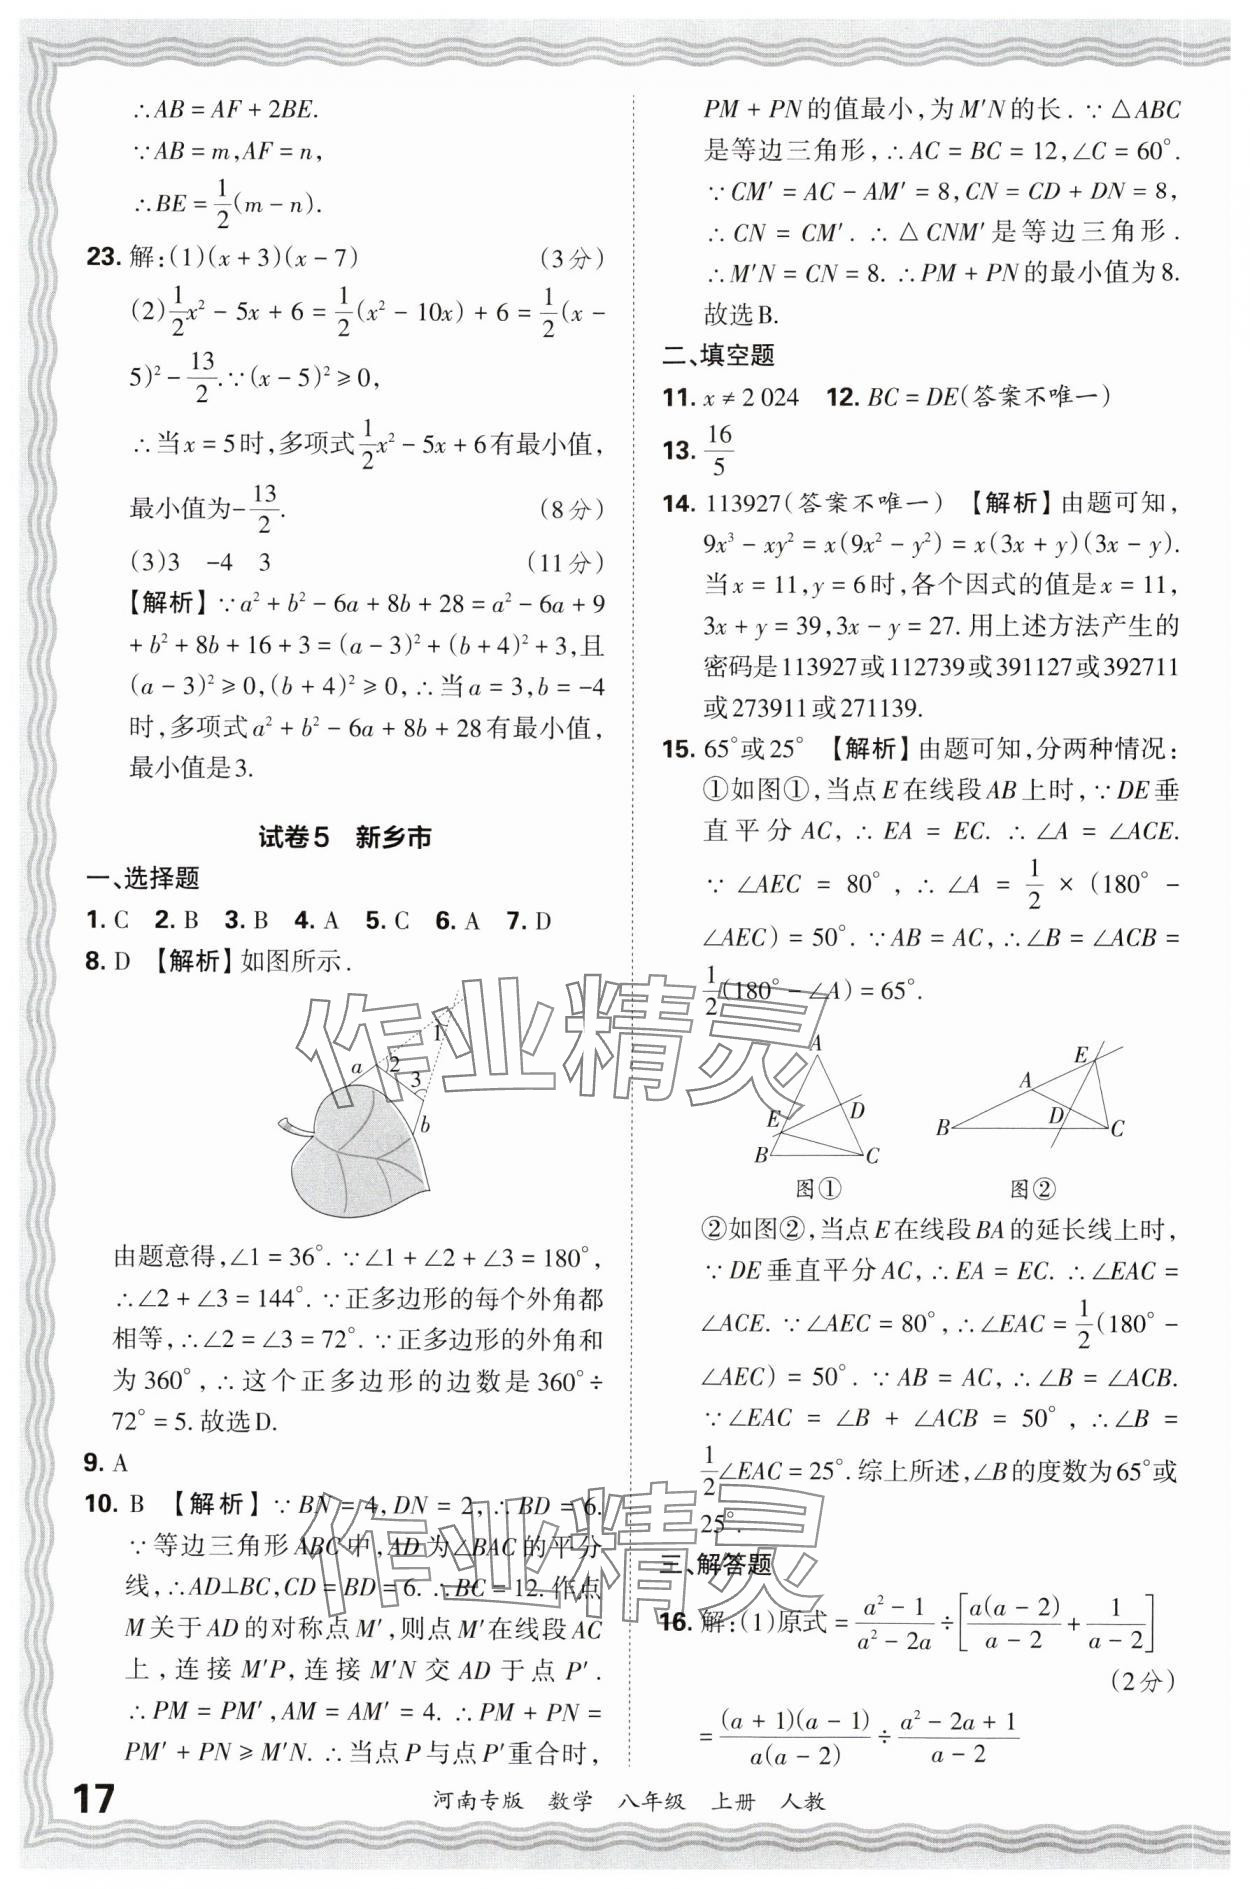 ∴AB=AF+2BE.
∵AB=m,AF=n,
∴BE=1/2(m-n).
23. 解:(1)(x+3)(x-7) (3分)
(2)1/2x²-5x+6=1/2(x²-10x)+6=1/2(x-
5)²-13/2.∵(x-5)²≥0,
∴当x=5时,多项式1/2x²-5x+6有最小值,
最小值为-13/2. (8分)
(3)3 -4 3 (11分)
【解析】∵a²+b²-6a+8b+28=a²-6a+9
+b²+8b+16+3=(a-3)²+(b+4)²+3,且
(a-3)²≥0,(b+4)²≥0,∴当a=3,b=-4
时,多项式a²+b²-6a+8b+28有最小值,
最小值是3.
试卷5 新乡市
一、选择题
1. C 2. B 3. B 4. A 5. C 6. A 7. D
8. D 【解析】如图所示.
a 2 1 3 b
由题意得,∠1=36°.∵∠1+∠2+∠3=180°,
∴∠2+∠3=144°.∵正多边形的每个外角都
相等,∴∠2=∠3=72°.∵正多边形的外角和
为360°,∴这个正多边形的边数是360°÷
72°=5.故选D.
9. A
10. B 【解析】∵BN=4,DN=2,∴BD=6.
∵等边三角形ABC中,AD为∠BAC的平分
线,∴AD⊥BC,CD=BD=6.∴BC=12.作点
M关于AD的对称点M′,则点M′在线段AC
上,连接M′P,连接M′N交AD于点P′.
∴PM=PM′,AM=AM′=4.∴PM+PN=
PM′+PN≥M′N.∴当点P与点P′重合时,
PM+PN的值最小,为M′N的长.∵△ABC
是等边三角形,∴AC=BC=12,∠C=60°.
∵CM′=AC-AM′=8,CN=CD+DN=8,
∴CN=CM′.∴△CNM′是等边三角形.
∴M′N=CN=8.∴PM+PN的最小值为8.
故选B.
二、填空题
11. x≠2 024 12. BC=DE(答案不唯一)
13. 16/5
14. 113927(答案不唯一) 【解析】由题可知,
9x³-xy²=x(9x²-y²)=x(3x+y)(3x-y).
当x=11,y=6时,各个因式的值是x=11,
3x+y=39,3x-y=27.用上述方法产生的
密码是113927或112739或391127或392711
或273911或271139.
15. 65°或25° 【解析】由题可知,分两种情况:
①如图①,当点E在线段AB上时,∵DE垂
直平分AC,∴EA=EC.∴∠A=∠ACE.
∵∠AEC=80°,∴∠A=1/2×(180°-
∠AEC)=50°.∵AB=AC,∴∠B=∠ACB=
1/2(180°-∠A)=65°.
A E D B C
图①
E A D B C
图②
②如图②,当点E在线段BA的延长线上时,
∵DE垂直平分AC,∴EA=EC.∴∠EAC=
∠ACE.∵∠AEC=80°,∴∠EAC=1/2(180°-
∠AEC)=50°.∵AB=AC,∴∠B=∠ACB.
∵∠EAC=∠B+∠ACB=50°,∴∠B=
1/2∠EAC=25°.综上所述,∠B的度数为65°或
25°.
三、解答题
16. 解:(1)原式=(a²-1)/(a²-2a)÷[a(a-2)/(a-2)+1/(a-2)]
(2分)
=(a+1)(a-1)/a(a-2)÷(a²-2a+1)/(a-2)
作业精灵
作业精灵
17
河南专版 数学 八年级 上册 人教